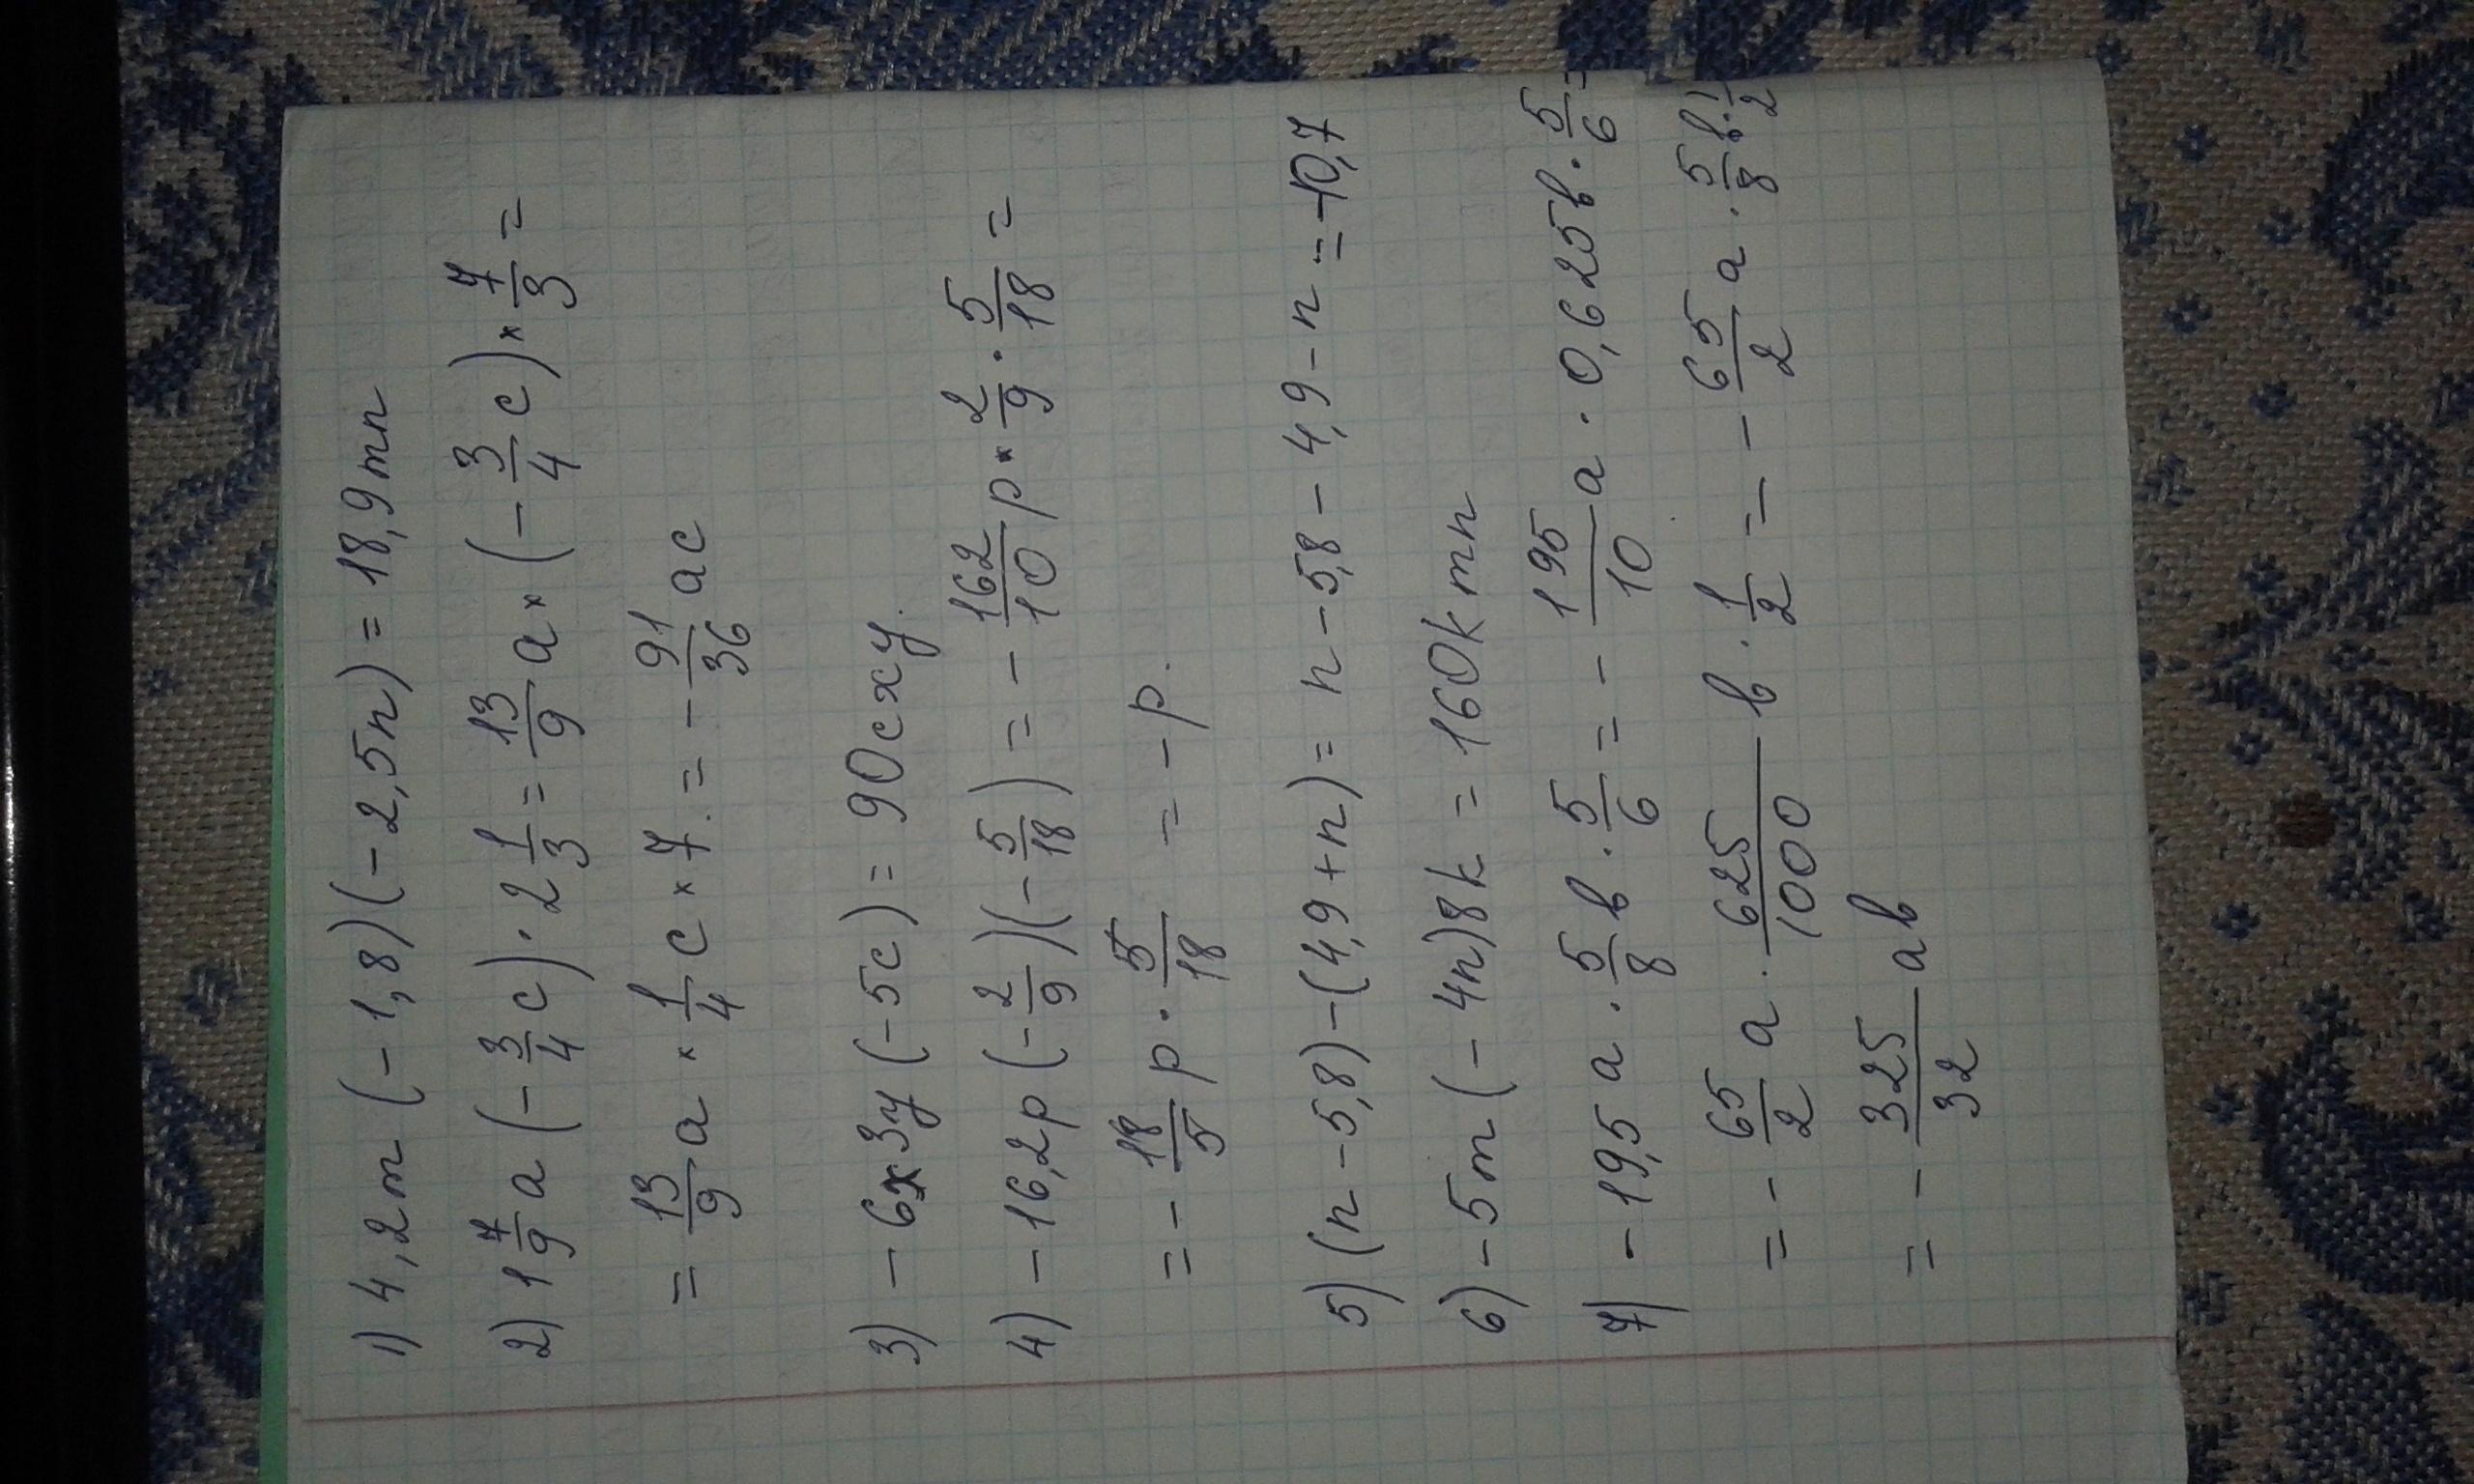 1) 4,2m(-1,8)(-2,5n) = 18,9mn
2) 1 7/9 a (-3/4 c) · 2 1/3 = 13/9 a × (-3/4 c) × 7/3 =
= 13/9 a × 1/4 c × 7 = -91/36 ac
3) -6x3y(-5c) = 90cxy.
4) -16,2p(-2/9)(-5/18) = -162/10 p · 2/9 · 5/18 =
= -18/5 p · 5/18 = -p.
5) (n-5,8)-(4,9+n) = n-5,8-4,9-n = -10,7
6) -5m(-4n)8k = 160kmn
7) -19,5a · 5/8 в · 5/6 = -195/10 a · 0,625в · 5/6 =
= -65/2 a · 625/1000 в · 1/2 = -65/2 a · 5/8 в · 1/2
= -325/32 ав